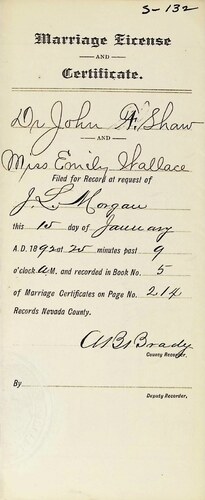 S-132
Marriage License
AND
Certificate.
Dr John F. Shaw
AND
Miss Emily Wallace
Filed for Record at request of
J. L. Morgan
this 15 day of January
A.D. 1892 at 25 minutes past 9
o'clock A M. and recorded in Book No. 5
of Marriage Certificates on Page No. 214
Records Nevada County.
Brady
County Recorder.
By
Deputy Recorder.